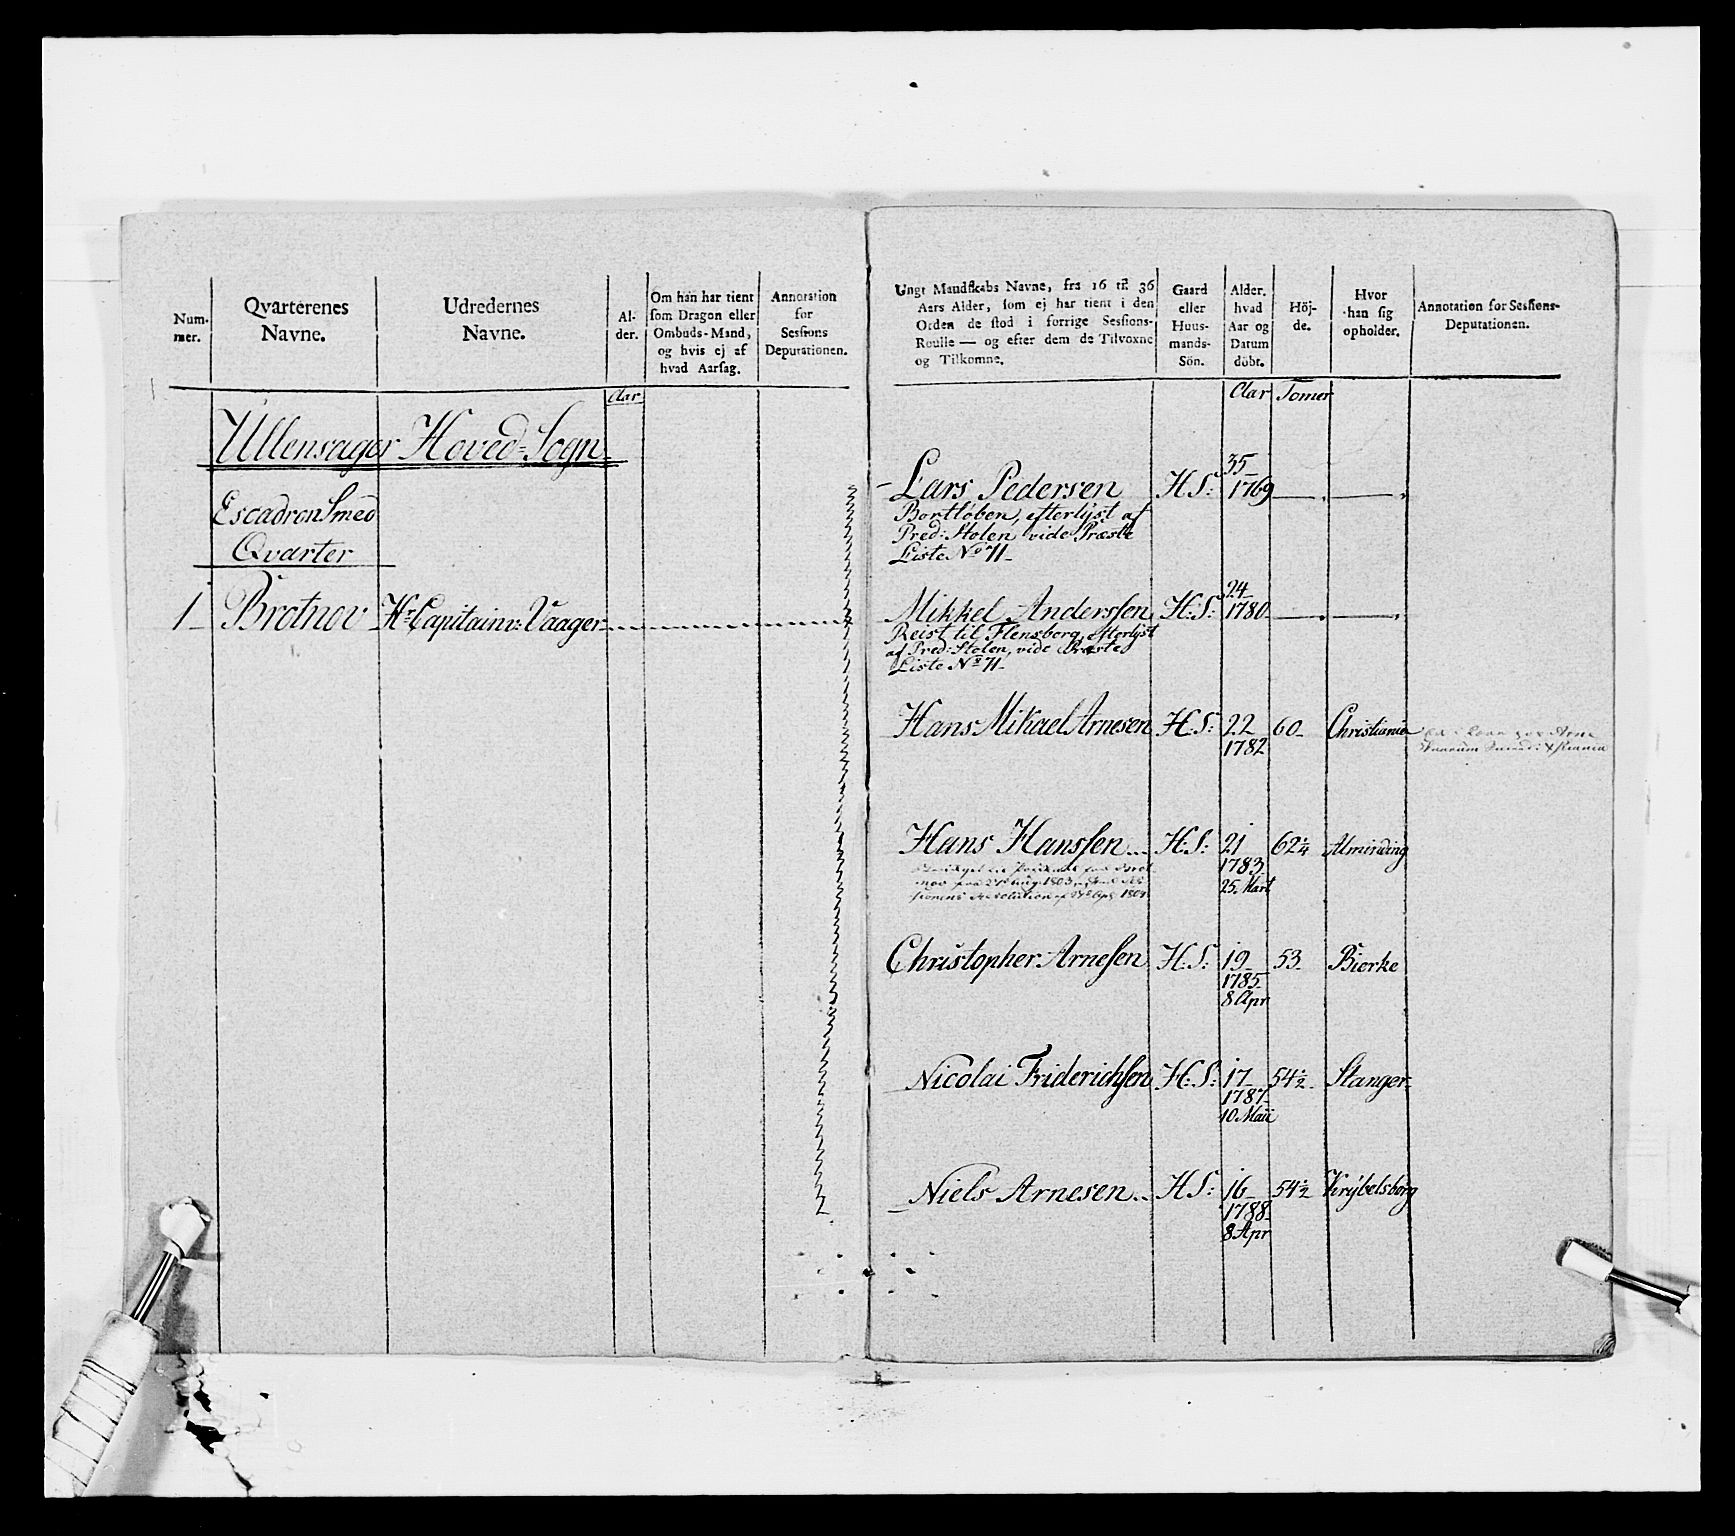 Num-
mer.
Qvarterenes
Navne.
Udredernes
Navne.
Al-
der.
Om han har tient
som Dragon eller
Ombuds-Mand,
og hvis ej af
hvad Aarsag.
Annotation
for
Sessions
Deputationen.
Aar
Ullensager Hoved-Sogn
Escadron Smed
Qvarter
1 Brotnov Hr Capitain v: Vaager
Ungt Mandskabs Navne, fra 16 til 36
Aars Alder, som ej har tient i den
Orden de stod i forrige Sessions-
Roulle — og efter dem de Tilvoxne
og Tilkomne.
Gaard
eller
Huus-
mands-
Sön.
Alder.
hvad
Aar og
Datum
döbt.
Höj-
de.
Hvor
han sig
opholder.
Annotation for Sessions-
Deputationen.
Aar Tomer
35
Lars Pedersen H S: 1769
Bortløben, efterlyst af
Pred: Stolen vide Præste
Liste No 71
24
Mikkel Anderssen H: S: 1780
Reist til Flensborg, efterlyst
af Pred: Stolen, vide Præste
Liste No 71
Hans Mikael Arnesen H: S: 22 60 Christiania
1782
Arne
Hans Hanssen H: S: 21 62 1/4 Alminding
1783
25. Mart
1803
Resolution af 1804
Christopher Arnesen H: S: 19 53 Bierke
1785
8 Apr
Nicolai Friderichsen H: S: 17 54 1/2 Stanger
1787
10 Maii
Niels Arnesen H S: 16 54 1/2 Krÿbelsborg
1788
8 Apr